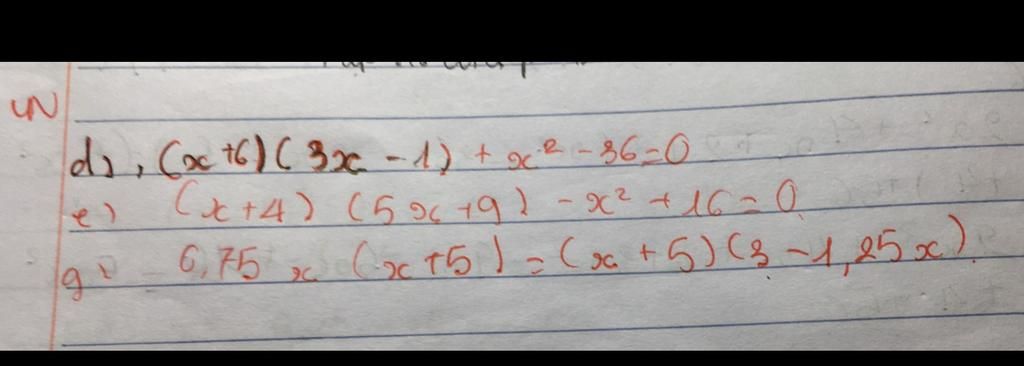 d), (x+6)(3x-1) + x² - 36=0
e) (x+4) (5x+9) - x² + 16 = 0
g) 6,75 x (x+5) = (x+5)(3-1,25x)